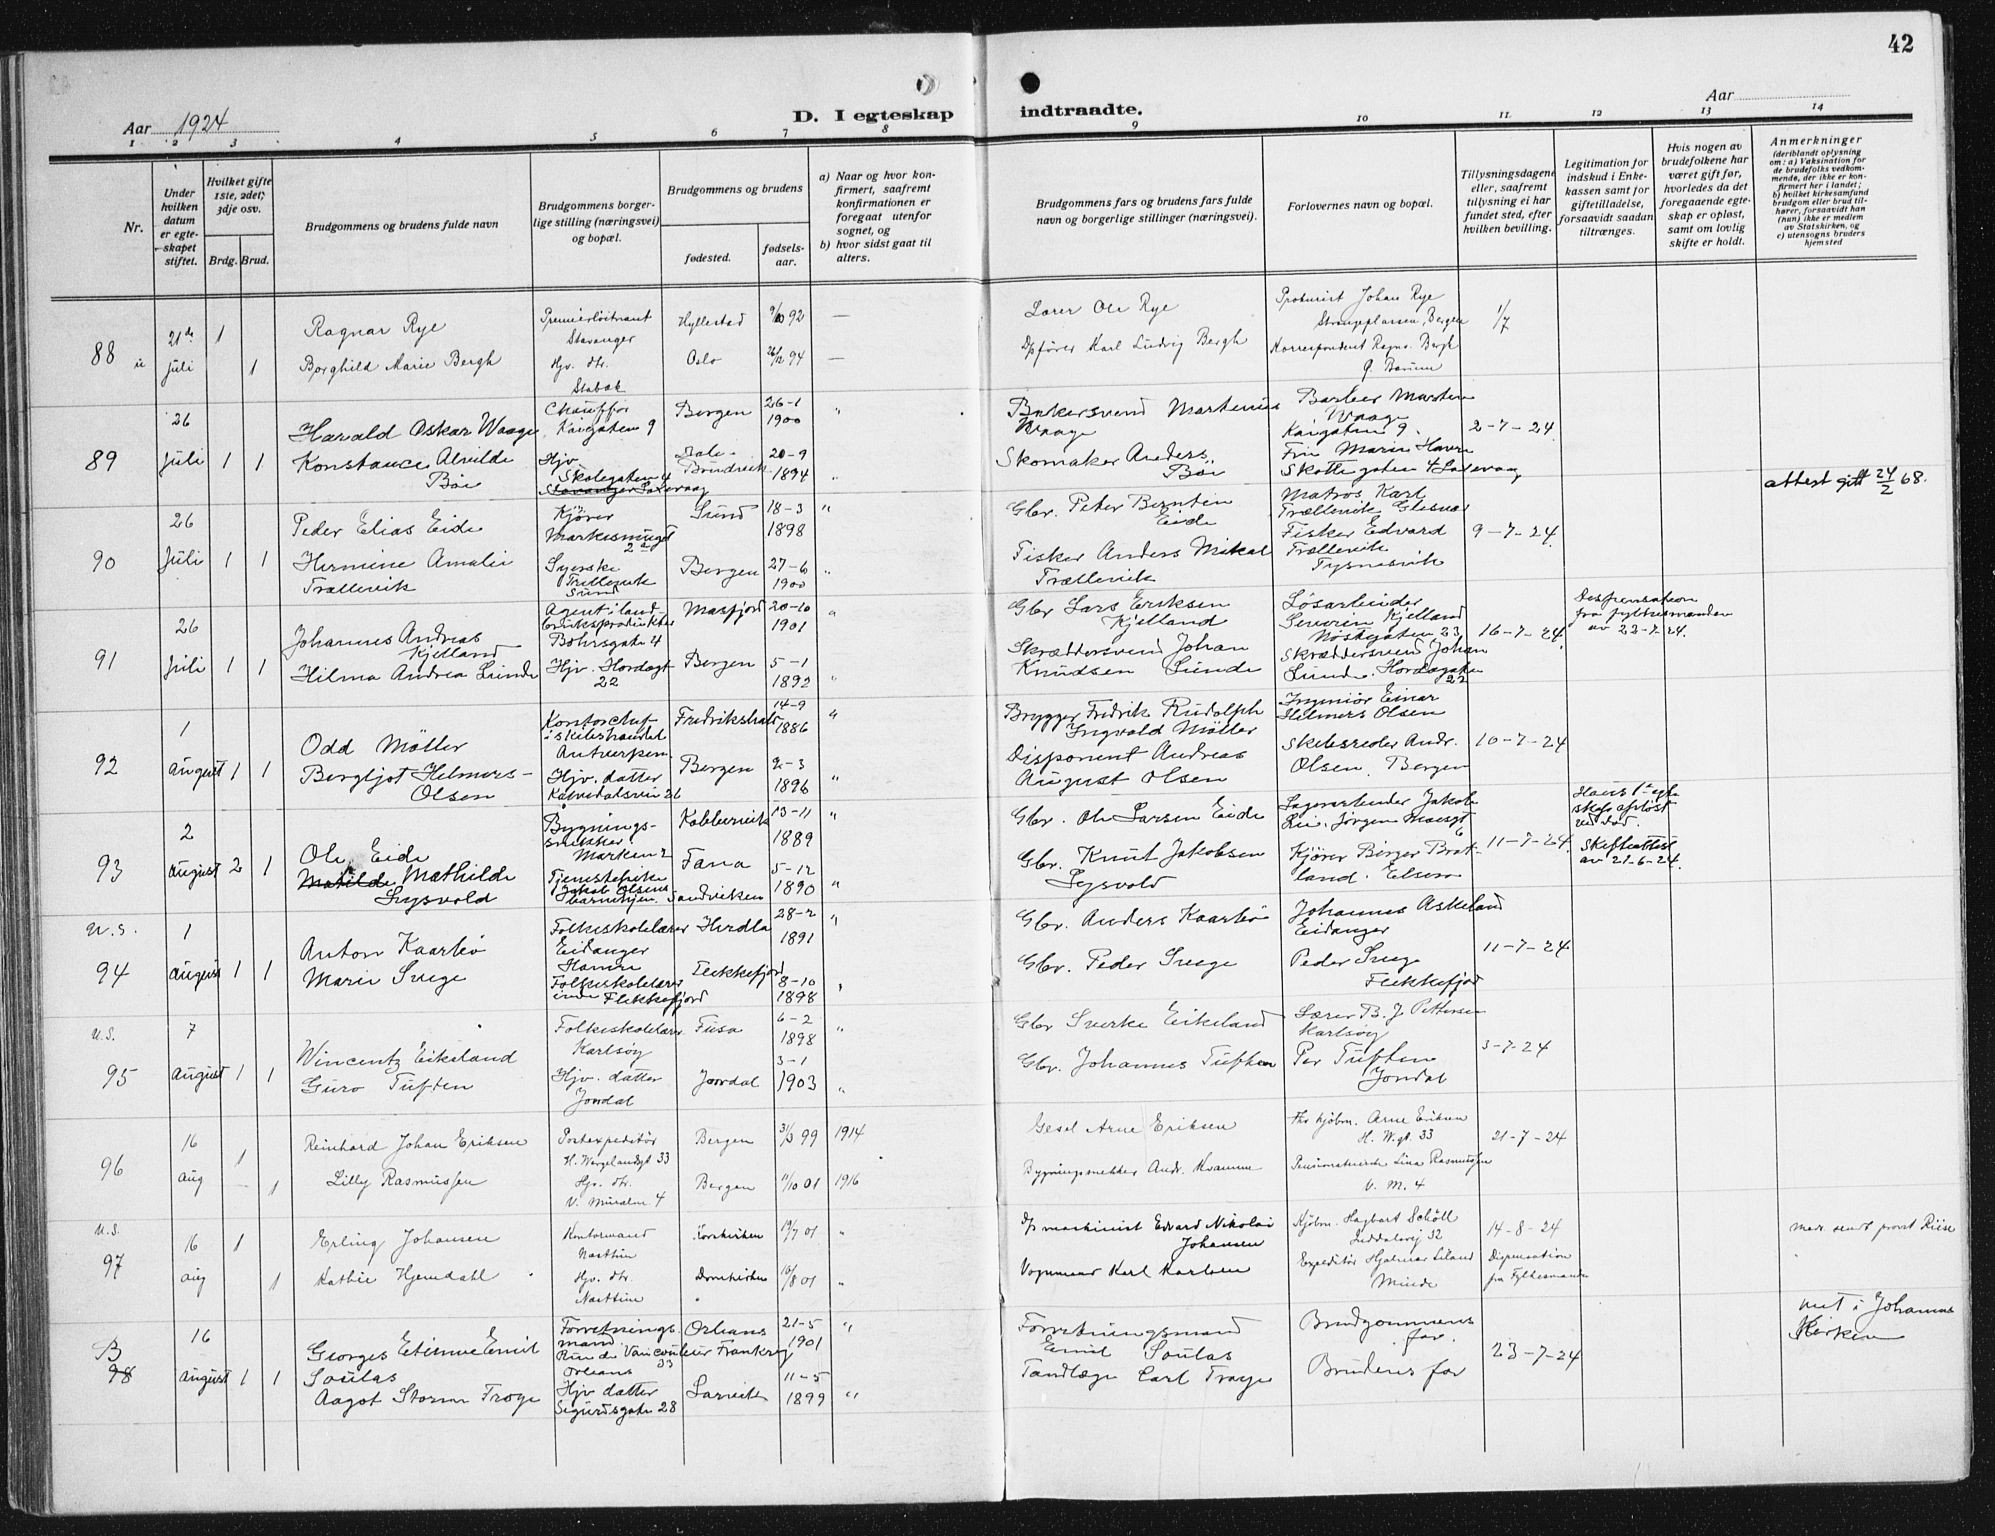 42
Aar 1924
D. I egteskap indtraadte.
Aar
1 2 3 4 5 6 7 8 9 10 11 12 13 14
Nr.
Under hvilken datum er egteskapet stiftet.
Hvilket gifte 1ste, 2det, 3dje osv.
Brdg. Brud.
Brudgommens og brudens fulde navn
Brudgommens borgerlige stilling (næringsvei) og bopæl.
Brudgommens og brudens
fødested.
fødselsaar.
a) Naar og hvor konfirmert, saafremt konfirmationen er foregaat utenfor sognet, og
b) hvor sidst gaat til alters.
Brudgommens fars og brudens fars fulde navn og borgerlige stillinger (næringsvei).
Forlovernes navn og bopæl.
Tillysningsdagene eller, saafremt tillysning ei har fundet sted, efter hvilken bevilling.
Legitimation for indskud i Enkekassen samt for giftetilladelse, forsaavidt saadan tiltrænges.
Hvis nogen av brudefolkene har været gift før, hvorledes da det foregaaende egteskap er opløst, samt om lovlig skifte er holdt.
Anmerkninger
(deriblandt oplysning om: a) Vaksination for de brudefolks vedkommende, der ikke er konfirmert her i landet; b) hvilket kirkesamfund brudgom eller brud tilhører, forsaavidt han (hun) ikke er medlem av Statskirken, og c) utensogns bruders hjemsted
88 21de juli 1 Ragnar Rye Premierløitnant Stavanger Hyllestad 9/10 92 — Lærer Ole Rye Prokurist Johan Rye Strangeplassen, Bergen 1/7
1 Borghild Marie Bergh Hjv. dtr. Stabæk Oslo 26/12 94 — D/pfører Karl Ludvig Bergh Korrespondent Ragnv. Bergh Ø. Bærum
89 26 Juli 1 1 Harald Oskar Waage Chauffør Kaigaten 9 Bergen 26-1 1900 " Bakersvend Martenius Waage Barber Marten Waage Kaigaten 9. 2-7-24
Konstance Alvilde Bøe Hjv. Skolegaten 4 Laxevaag Dale-Bruvik 20-9 1894 " Skomaker Anders Bøe Frk Marie Skottegaten 4 Laxevaag
attest gift 24/2 68.
90 26 Juli 1 1 Peder Elias Eide Kjører Markesmuget 2 Sund 18-3 1898 " Gbr. Peter Berntin Eide Matros Karl Trællevik Glesvær 9-7-24
Hermine Amalie Trællevik Syerske Trællevik Sund Bergen 27-6 1900 " Fisker Anders Mikal Trællevik Fisker Edvard Trællevik Tysnesvik
91 26 Juli 1 1 Johannes Andreas Kjelland Agent i landbruksprodukter Bøhrsgate 4 Masfjord 20-10 1901 " Gbr Lars Eriksen Kjelland Løsarbeider Severin Kjelland Nøstegaten 33 16-7-24 Dispensation fra fylkesmanden av 22-7-24.
Hilma Andrea Lunde Hjv. Hordagt 22 Bergen 5-1 1892 " Skræddersvend Johan Knudsen Lunde Skræddersvend Johan Lunde. Hordagaten 22
92 1 August 1 1 Odd Møller Kontorchef i skibshandel Antverpen Fredrikshald 14-9 1886 " Brygger Fredrik Rudolph Ingvald Møller Ingeniør Einar Helmers Olsen 10-7-24
Bergljot Helmers-Olsen Hjv. datter Kalvedalsvei 26 Bergen 2-3 1896 " Disponent Andreas August Olsen Skibsreder Andr. Olsen, Bergen
93 2 August 2 1 Ole Eide Bygningssnekker Marken 2 Kobbervik 13-11 1889 " Gbr. Ole Larsen Eide Lagerarbeider Jakob Lie. Jørgen Moesgt 6 11-7-24 Hans 1ste egteskap opløst ved død. Skifteattest av 21-6-24.
Matilde Mathilde Lysvold Tjenestepike Jakob Olsens barnehjem. Sandviken Fana 5-12 1890 " Gbr. Knut Jakobsen Lysvold Kjører Birger Bratland. Elsero
u.s. 94 1 August 1 1 Anton Kaarbø Folkeskolelærer Eidanger Herdla 28-2 1891 " Gbr. Anders Kaarbø Johannes Askeland Eidanger 11-7-24
Marie Svege Folkeskolelærerinde Flekkefjord Flekkefjord 8-10 1898 " Gbr. Peder Svege Peder Svege Flekkefjord
u.s. 95 7 August 1 1 Wincentz Eikeland Folkeskolelærer Karlsøy Fusa 6-2 1898 " Gbr Sverke Eikeland Lærer B. J. Pettersen Karlsøy 3-7-24
Guro Tuften Hjv. datter Jondal Jondal 3-1 1903 " Gbr. Johannes Tuften Per Tuften Jondal
96 16 Aug 1 Reinhard Johan Eriksen Postexpeditør H. Wergelandsgt 33 Bergen 31/3 99 1914 Gesel Arne Eriksen Kjøbm. Arne Eriksen H. W.gt. 33 21-7-24
1 Lilly Rasmussen Hjv. dtr. V. Muralm 4 Bergen 11/10 01 1916 Bygningssnekker Andr. Kvamme Pensionatværtinde Lina Rasmussen V. M. 4
u.s. 97 16 Aug 1 Erling Johansen Kontormand Næsttun Korskirken 19/7 01 " D/p maschinist Edvard Nikolai Johansen Kjøbm. Hagbart Schøll Lyddalsvej 32 14-8-24
1 Kathie Hjemdahl Hjv. dtr. Næsttun Domkirken 10/8 01 " Vognmand Karl Karlsen Expeditør Hjalmar Liland Minde Dispensation fra Fylkesmanden
Medd. sendt provst Riise
B 98 16 August 1 1 Georges Etienne Emil Soulas Forretningsmand Rue de Vaucouleur 33 Orleans Orleans Frankrig 21-5 1901 " Forretningsmand Emil Soulas Brudgommens far 23-7-24
Aagot Storm Troye Hjv datter Sigurdsgate 28 Larvik 11-5 1899 " Tandlæge Carl Troye Brudens far
viet i Johannes Kirken